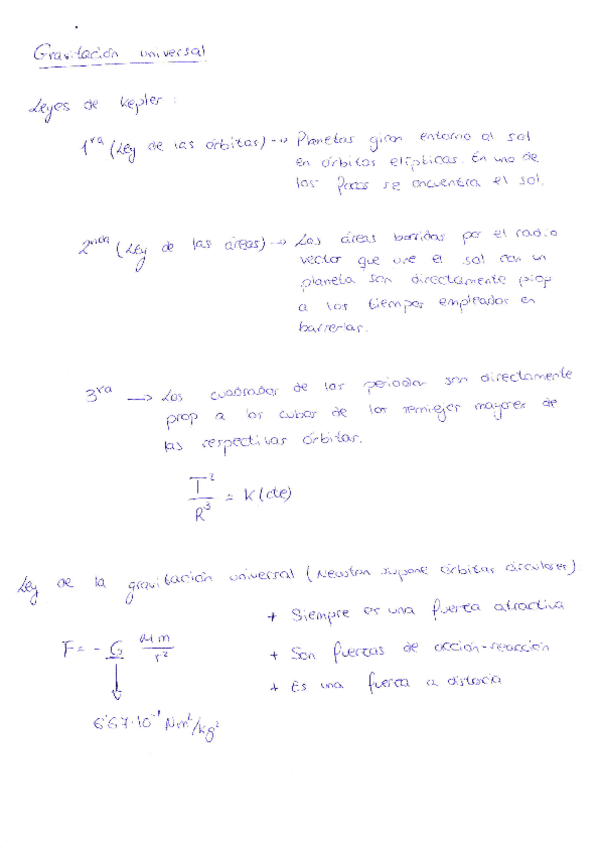 Gravitación universal
Leyes de Kepler :
1ra (Ley de las órbitas) --> Planetas giran entorno al sol
en órbitas elípticas. En uno de
los focos se encuentra el sol.
2nda (Ley de las áreas) --> Las áreas barridas por el radio
vector que une el sol con un
planeta son directamente prop
a los tiempos empleados en
barrerlas.
3ra --> Los cuadrados de los periodos son directamente
prop a los cubos de los semiejes mayores de
las respectivas órbitas.
T²/R³ = K (cte)
Ley de la gravitación universal (Newton supone órbitas circulares)
+ Siempre es una fuerza atractiva
F = - G Mm/r²
+ Son fuerzas de acción-reacción
+ Es una fuerza a distacia
6'67·10⁻¹ Nm²/kg²